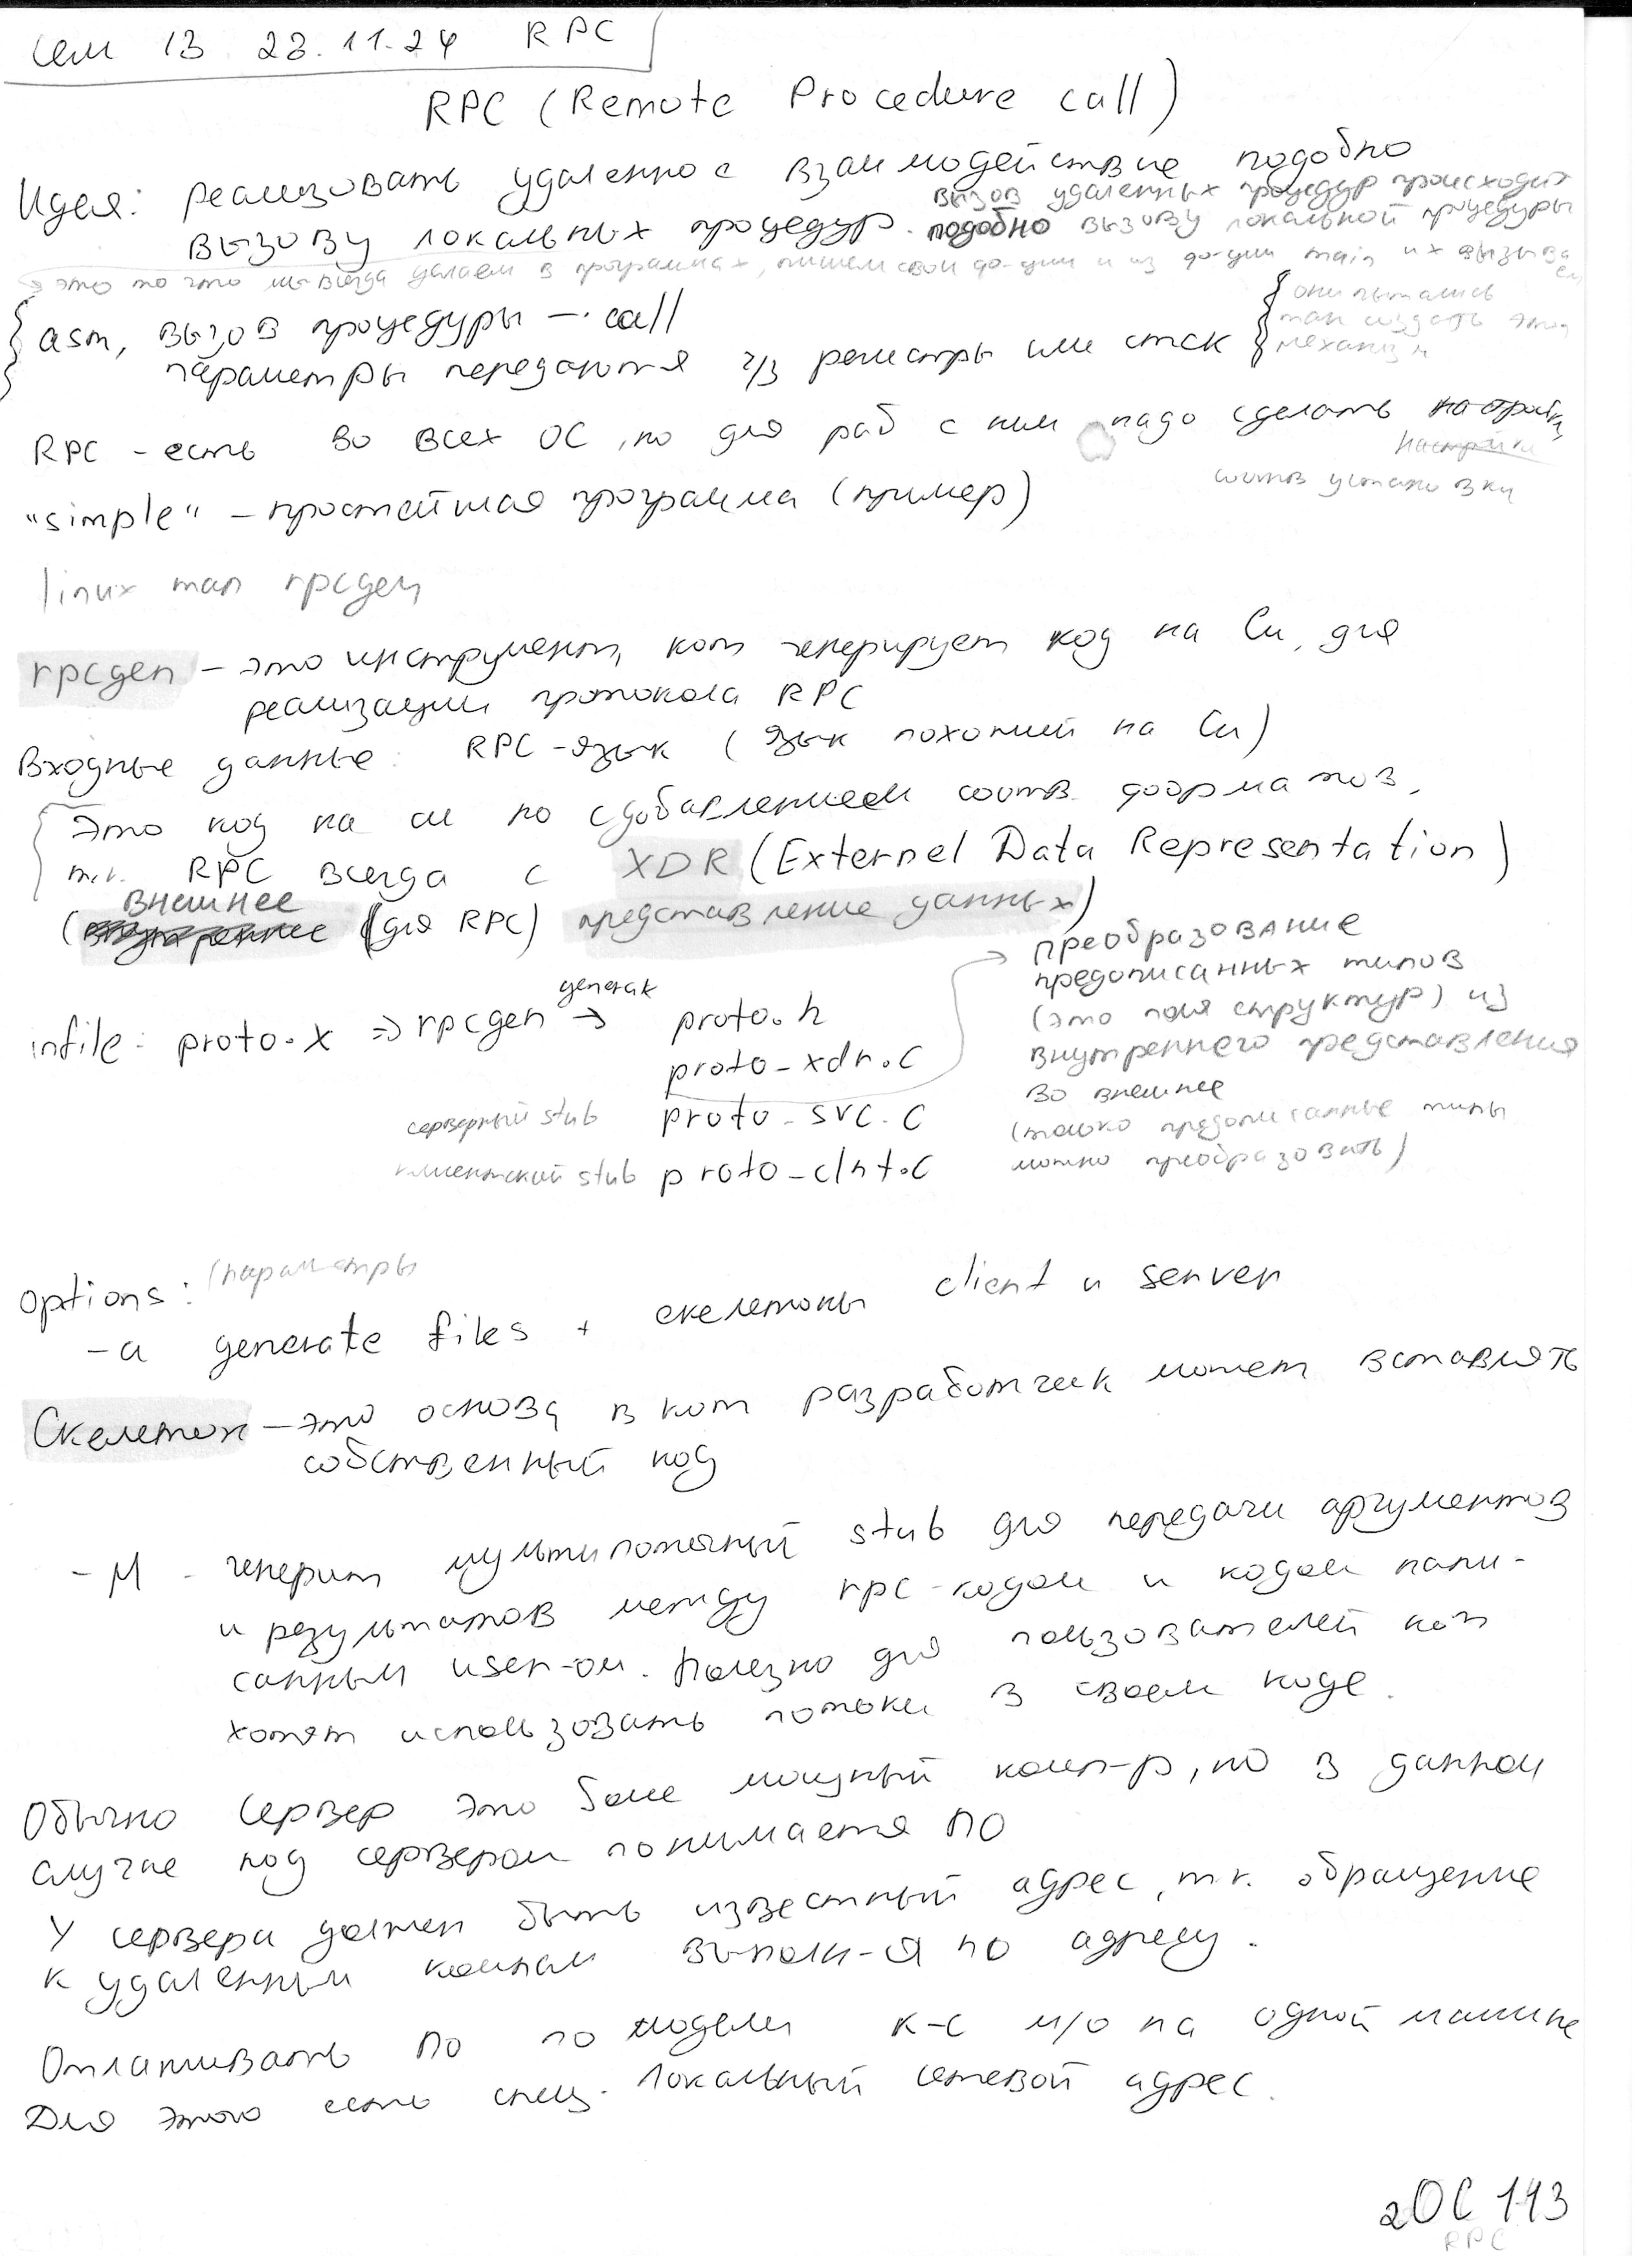 Сем 13 23.11.24 RPC
RPC (Remote Procedure call)
Идея: реализовать удаленное взаимодействие подобно
вызову локальных процедур. вызов удаленных процедур происходит
подобно вызову локальной процедуры
это то что мы всегда делаем в программах, пишем свои ф-ции и из ф-ции main их вызываем
asm, вызов процедуры — call
параметры передаются ч/з регистры или стек
они пытались
так создать этот
механизм
RPC - есть во всех ОС, но для раб с ним надо сделать настройки
настройки
соотв установки
"simple" - простейшая программа (пример)
linux man rpcgen
rpcgen - это инструмент, кот генерирует код на Си, для
реализации протокола RPC
Входные данные: RPC-язык (язык похожий на Си)
Это код на си но с добавлением соотв. форматов,
т.к. RPC всегда с XDR (Externel Data Representation)
внешнее
(внутреннее (для RPC) представление данных)
infile: proto.x => rpcgen generat → proto.h
proto_xdr.c
серверный stub proto_svc.c
клиентский stub proto_clnt.c
преобразование
предописанных типов
(это поля структур) из
внутреннего представления
во внешнее
(только предописанные типы
можно преобразовать)
options: (параметры
-a generate files + скелетоны client и server
Скелетон - это основа в кот разработчик может вставлять
собственный код
-M - генерит мультипоточный stub для передачи аргументов
и результатов между rpc-кодом и кодом напи-
санным user-ом. Полезно для пользователей кот
хотят использовать потоки в своем коде.
Обычно сервер это более мощный комп-р, но в данном
случае под сервером понимается ПО
У сервера должен быть известный адрес, т.к. обращение
к удаленным компам выполн-я по адресу.
Отлаживать ПО по модели к-с м/о на одной машине
Для этого есть спец. локальный сетевой адрес.
2ОС 143
RPC